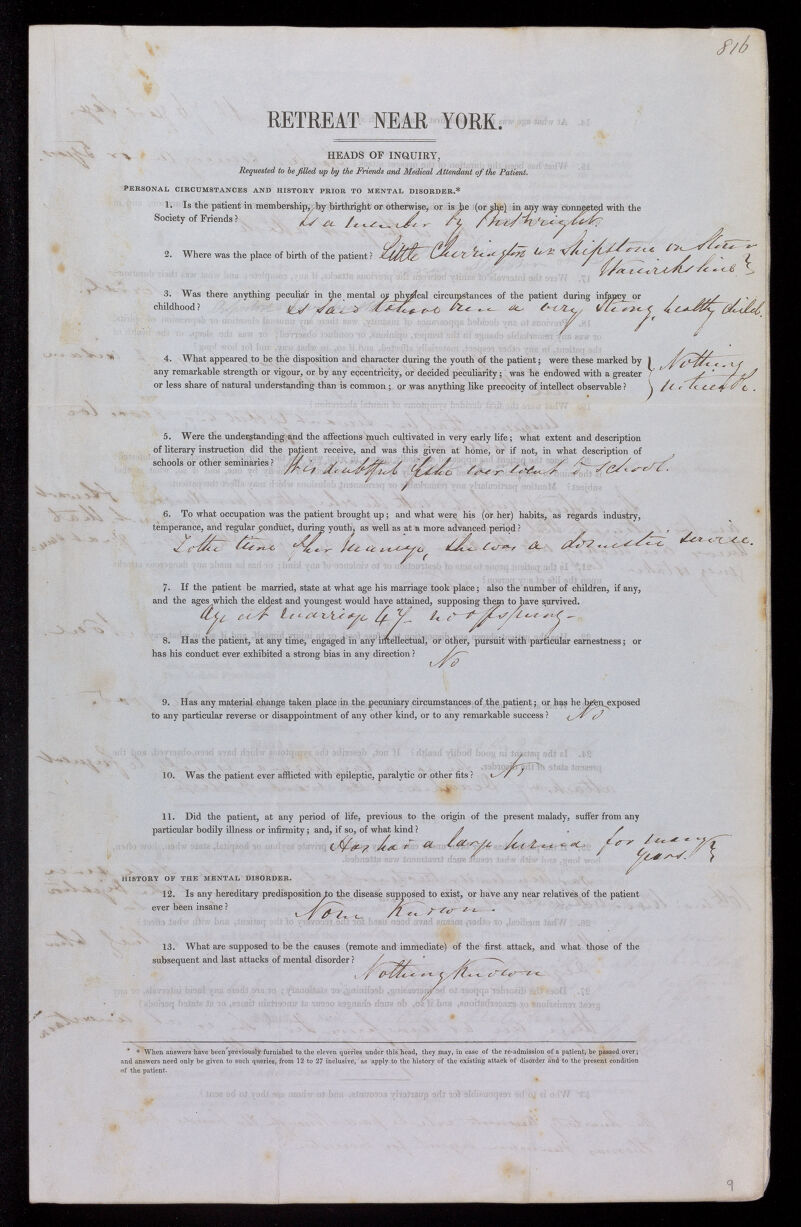 816
RETREAT NEAR YORK.
HEADS OF INQUIRY,
Requested to be filled up by the Friends and Medical Attendant of the Patient.
PERSONAL CIRCUMSTANCES AND HISTORY PRIOR TO MENTAL DISORDER.*
1. Is the patient in membership, by birthright or otherwise, or is he (or she) in any way connected with the
Society of Friends? Is a member by Birthright.
2. Where was the place of birth of the patient? Little Cherrington nr Shipstone on Stour
Warwickshire
3. Was there anything peculiar in the mental or physical circumstances of the patient during infancy or
childhood? Is said to have been a very strong, healthy child.
4. What appeared to be the disposition and character during the youth of the patient; were these marked by
any remarkable strength or vigour, or by any eccentricity, or decided peculiarity; was he endowed with a greater
or less share of natural understanding than is common; or was anything like precocity of intellect observable?
Nothing
noticeable.
5. Were the understanding and the affections much cultivated in very early life; what extent and description
of literary instruction did the patient receive, and was this given at home, or if not, in what description of
schools or other seminaries? It is doubtful if she ever went to school.
6. To what occupation was the patient brought up; and what were his (or her) habits, as regards industry,
temperance, and regular conduct, during youth, as well as at a more advanced period?
To the time of her marriage, she was a domestic service.
7. If the patient be married, state at what age his marriage took place; also the number of children, if any,
and the ages which the eldest and youngest would have attained, supposing them to have survived.
Age at marriage 47 no offspring -
8. Has the patient, at any time, engaged in any intellectual, or other, pursuit with particular earnestness; or
has his conduct ever exhibited a strong bias in any direction?
No
9. Has any material change taken place in the pecuniary circumstances of the patient; or has he been exposed
to any particular reverse or disappointment of any other kind, or to any remarkable success? No
10. Was the patient ever afflicted with epileptic, paralytic or other fits? No
11. Did the patient, at any period of life, previous to the origin of the present malady, suffer from any
particular bodily illness or infirmity; and, if so, of what kind?
Has had a large hernia for many
years.
HISTORY OF THE MENTAL DISORDER.
12. Is any hereditary predisposition to the disease supposed to exist, or have any near relatives of the patient
ever been insane? None Known.
13. What are supposed to be the causes (remote and immediate) of the first attack, and what those of the
subsequent and last attacks of mental disorder?
Nothing Known
* When answers have been previously furnished to the eleven queries under this head, they may, in case of the re-admission of a patient, be passed over;
and answers need only be given to such queries, from 12 to 27 inclusive, as apply to the history of the existing attack of disorder and to the present condition
of the patient.
9